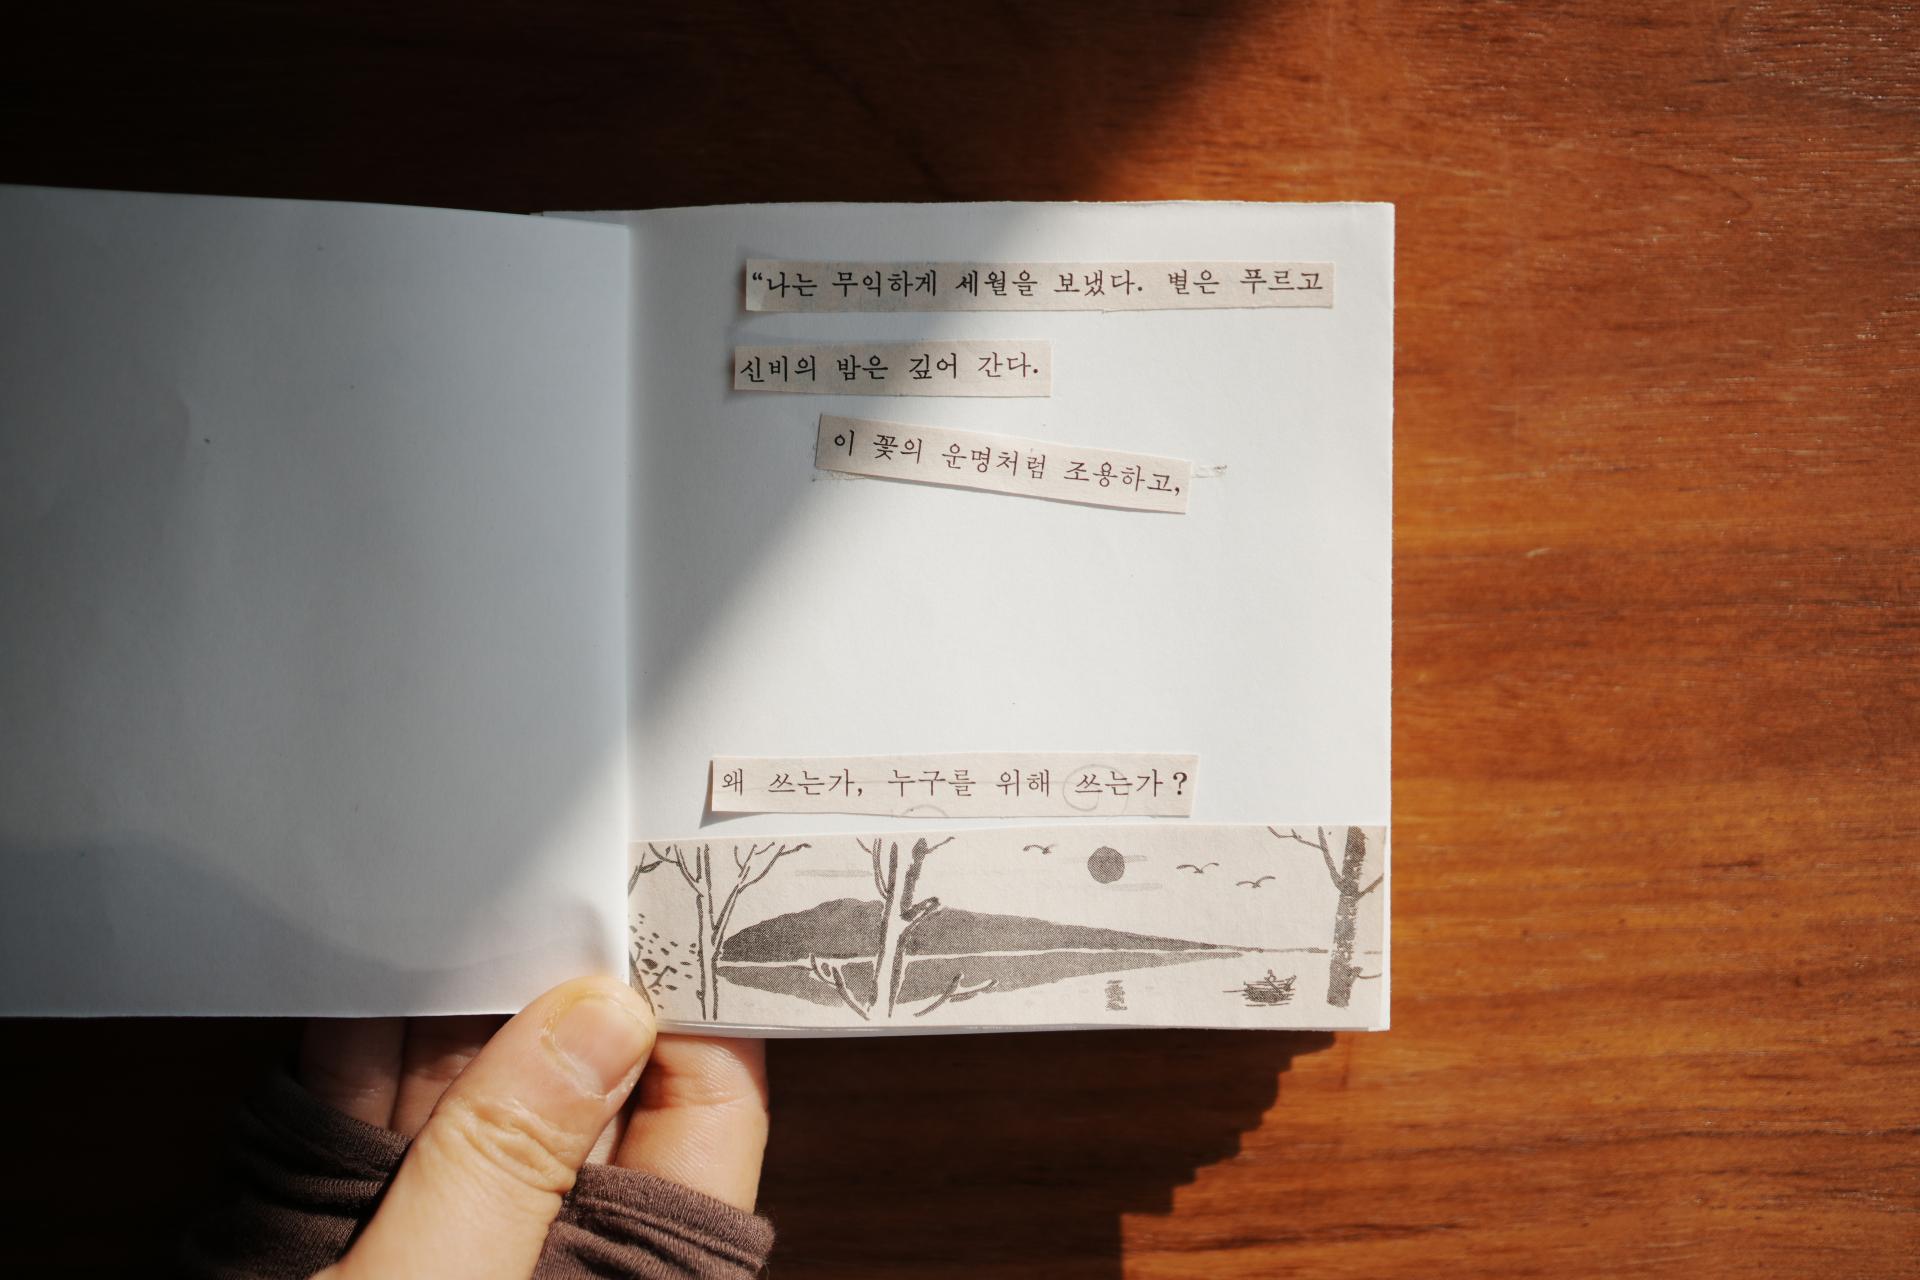 “나는 무익하게 세월을 보냈다. 별은 푸르고
신비의 밤은 깊어 간다.
이 꽃의 운명처럼 조용하고,
왜 쓰는가, 누구를 위해 쓰는가?